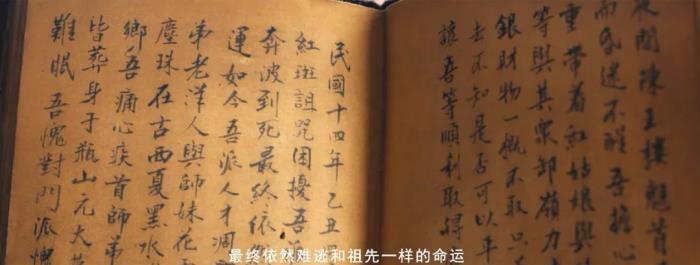 聞陳玉樓魁首
而昏迷不醒吾擔心
重帶着紅姑娘與
等與其眾卸嶺力
銀財物一概不取只
去不知是否可以平
讓吾等順利取得
民國十四年乙丑
紅斑詛咒困擾吾
奔波到死最終依
運如今吾派人才凋
弟老洋人與師妹花
塵珠在古西夏黑水
鄉吾痛心疾首師弟
皆葬身于瓶山元大
難眠吾愧對門派愧
最终依然难逃和祖先一样的命运